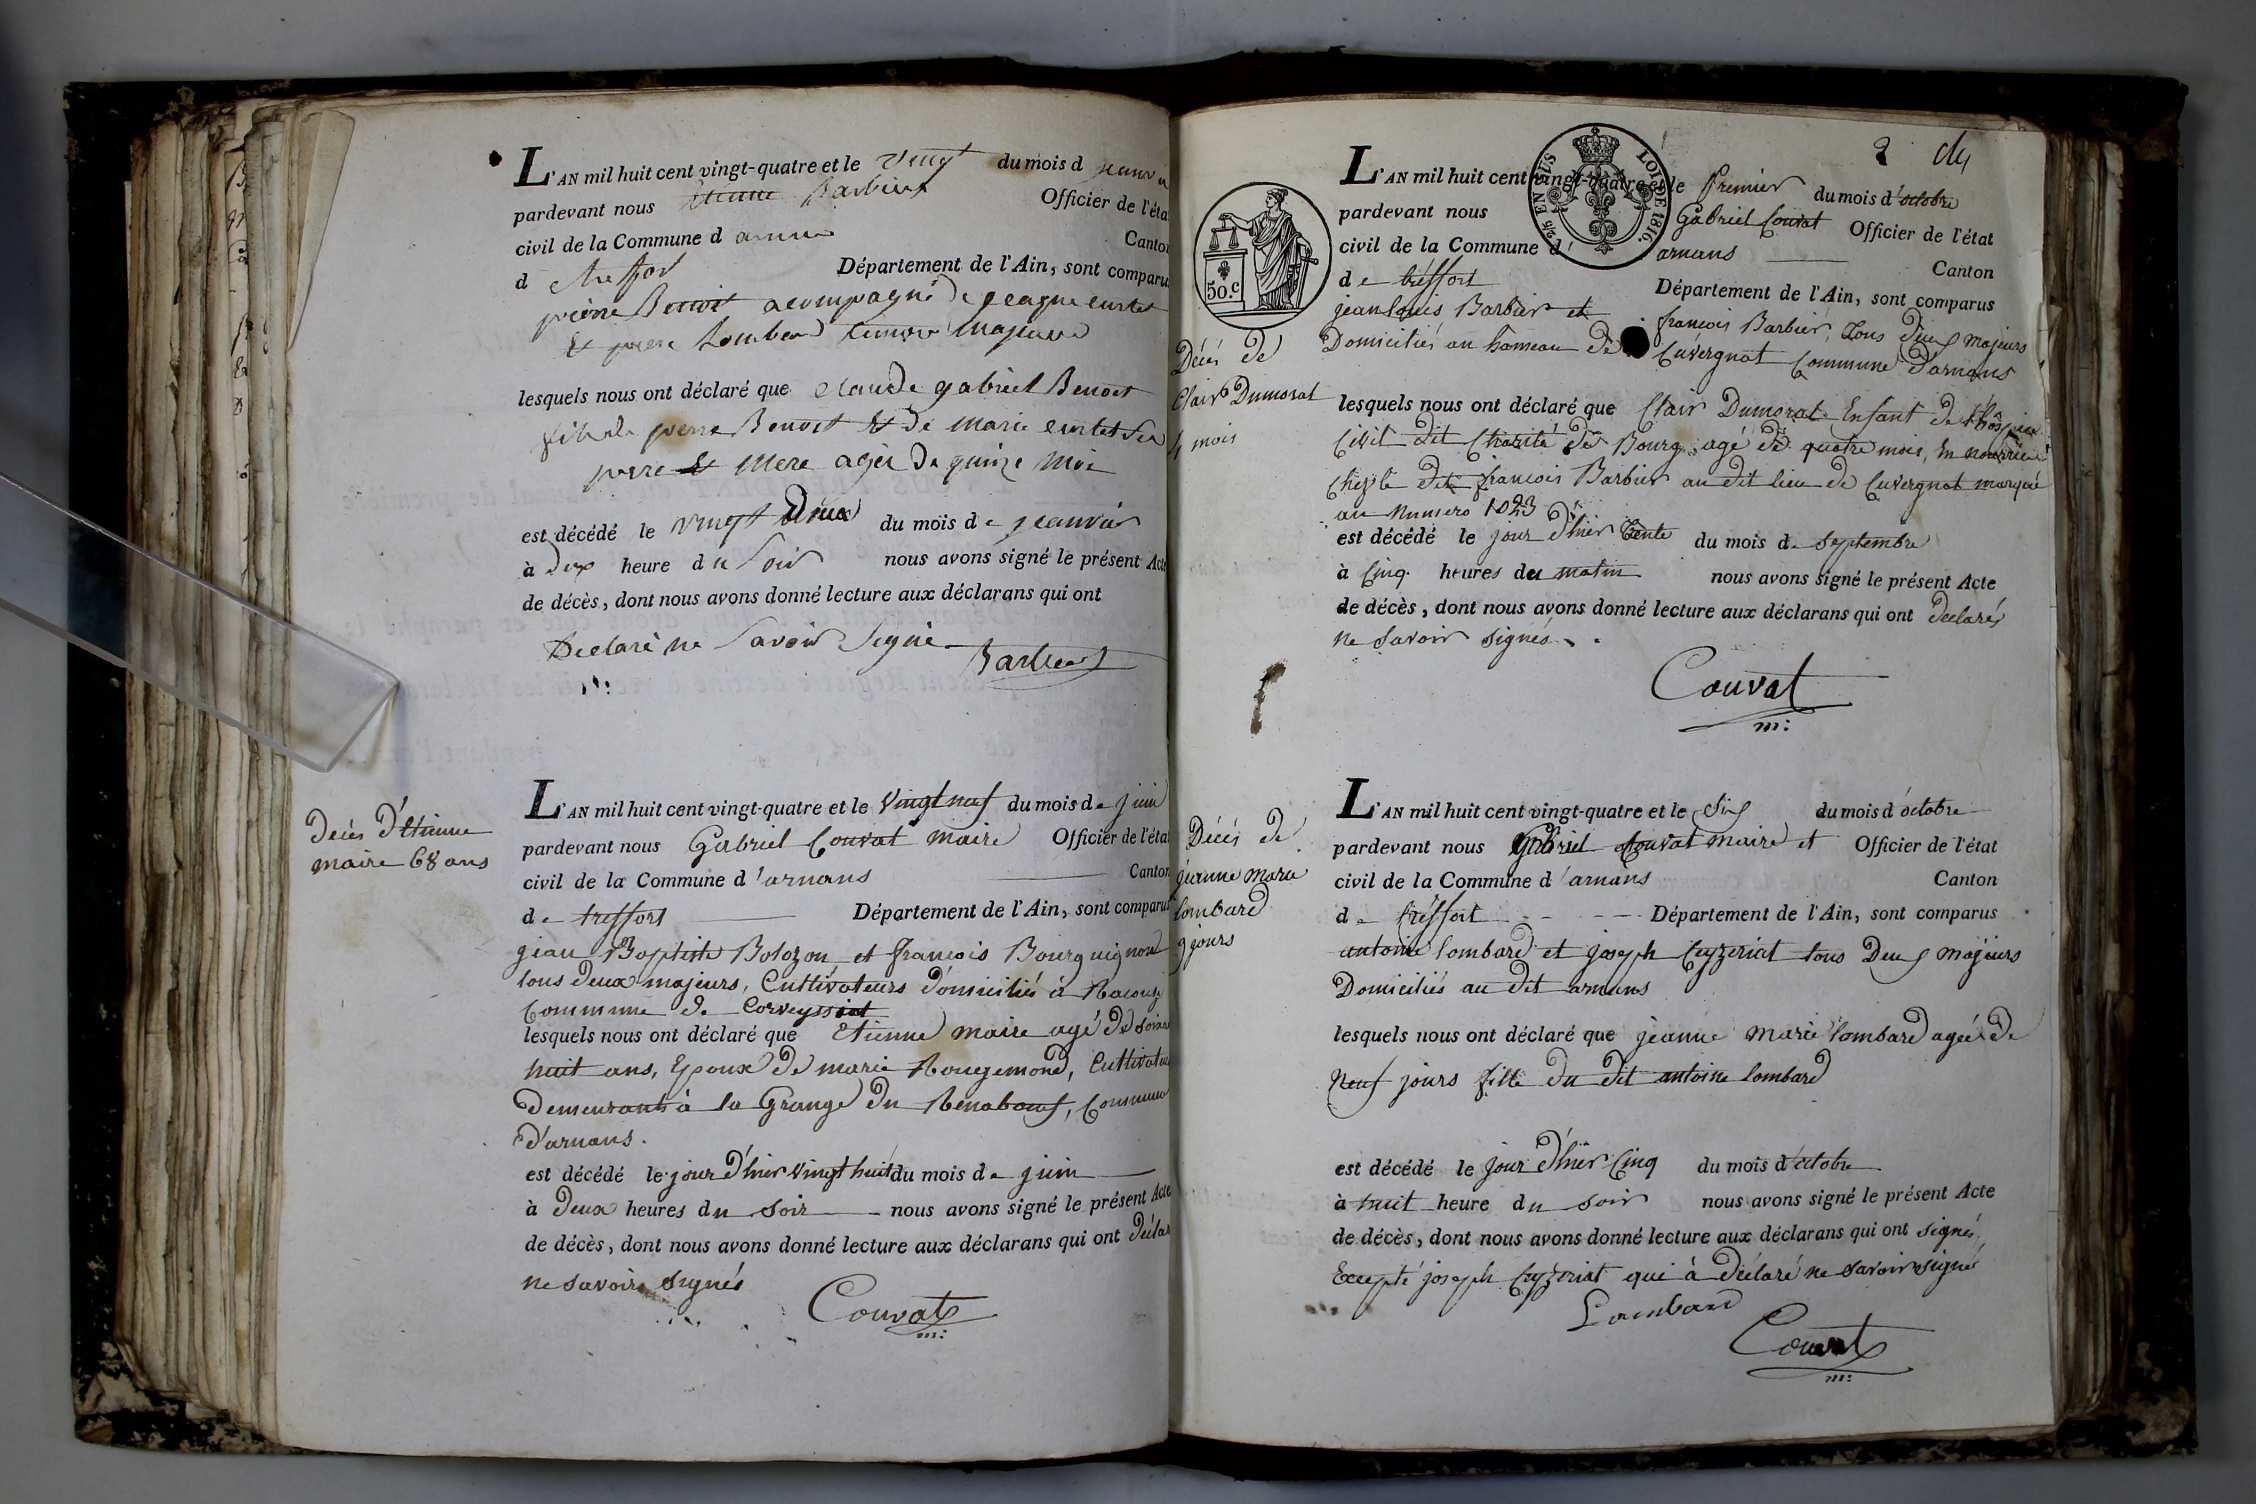 L'AN mil huit cent vingt-quatre et le vingt du mois d jeanvie
pardevant nous Etienne Barbier Officier de l'éta
civil de la Commune d arnans Canton
d treffor Département de l'Ain, sont comparu
pierre Benoit acompagné de
& pierre Lombard majeure
lesquels nous ont déclaré que claude gabriel Benoit
fils de pierre Benoit & de marie curtet ses
pere & mere agéz de quinze moi
est décédé le vingt deux du mois de jeanvier
à dix heure du soir nous avons signé le présent Acte
de décès, dont nous avons donné lecture aux déclarans qui ont
declaré ne savoir signé
Barbier
Décés d'Etienne
maire 68 ans
L'AN mil huit cent vingt-quatre et le vingt neuf du mois de juin
pardevant nous Gabriel Couvat maire Officier de l'état
civil de la Commune d'arnans Canton
de treffort Département de l'Ain, sont comparus
jean Baptiste Bolozon et françois Bourguignon
tous deux majeurs, Cultivateurs domiciliés à Racouze
Commune de Corveyssiat
lesquels nous ont déclaré que Etienne maire agé de soixa
huit ans, Epoux de marie Rougemond, Cultivateu
demeurant à la Grange du Renabœuf, Commune
d'arnans.
est décédé le jour d'hier vingt huit du mois de juin
à deux heures du soir nous avons signé le présent Acte
de décès, dont nous avons donné lecture aux déclarans qui ont déclar
ne savoir signés
Couvat
m:
2
LOI DE 1816.
50.c
Décés de
Clair Dumorat
4 mois
L'AN mil huit cent vingt-quatre et le Premier du mois d'octobre
pardevant nous Gabriel Couvat Officier de l'état
civil de la Commune d'arnans Canton
de tréffort Département de l'Ain, sont comparus
jean Louis Barbier et françois Barbier, tous deux majeurs
Domiciliés au hameau de Cuvergnat Commune d'arnans
lesquels nous ont déclaré que Clair Dumorat Enfant de l'hôspice
Civil dit Charité de Bourg, agé de quatre mois, en nourrice
Chez le dit françois Barbier au dit lieu de Cuvergnat marqué
au numero 1023
est décédé le jour d'hier trente du mois de septembre
à Cinq heures du matin nous avons signé le présent Acte
de décès, dont nous avons donné lecture aux déclarans qui ont declarés
ne savoir signés.
Couvat
m:
Décés de
jeanne marie
lombard
9 jours
L'AN mil huit cent vingt-quatre et le six du mois d'octobre
pardevant nous Gabriel Couvat maire et Officier de l'état
civil de la Commune d'arnans Canton
de tréffort Département de l'Ain, sont comparus
antoine lombard et joseph Ceyzeriat tous Deux majeurs
Domiciliés au dit arnans
lesquels nous ont déclaré que jeanne marie lombard agée de
Neuf jours fille du dit antoine lombard
est décédé le jour d'hier Cinq du mois d'octobre
à huit heure du soir nous avons signé le présent Acte
de décès, dont nous avons donné lecture aux déclarans qui ont signés,
Excepté joseph Ceyzeriat qui à déclaré ne savoir signés
Lombard
Couvat
m: